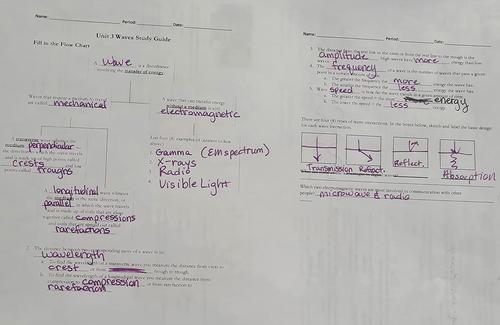 Name: Period: Date:
Unit 3 Waves Study Guide
Fill in the Flow Chart
A wave is a disturbance
involving the transfer of energy
Waves that require a medium
are called mechanical
A wave that can transfer energy
without a medium is
electromagnetic
A transverse wave
medium perpendicular
the direction in which the wave travels
and is made up of high points called
crests and low
points called troughs
List four (4) examples of
above)
1. Gamma (EM spectrum)
2. X-rays
3. Radio
4. Visible Light
A longitudinal wave vibrates
the medium in the same direction, or
parallel in which the wave travels
and is made up of
together called compressions
rarefactions
2. The distance between two corresponding parts of a wave is its
wavelength
a. To find the wavelength of a transverse wave you measure the distance from crest to
crest or from trough to trough.
b. To find the wavelength of a longitudinal wave you measure the distance from
compression to compression or from rarefaction to
rarefaction
Name: Period: Date:
3. The distance from the rest line to the crest or from the rest line to the trough is the
amplitude High waves have more energy than low
4. The frequency of a wave is the number of waves that pass a given
a. The greater the frequency the more energy the wave has.
b. The smaller the frequency the less energy the wave has.
5. Wave speed is how
a. The greater the speed is the more energy
b. The lower the speed is less
There are four (4) types of wave interactions. In the boxes below, sketch and label the basic design
for each wave interaction.
Transmission Refract. Reflect. Absorption
Which two electromagnetic waves are most involved in communication with other
people? microwave & radio